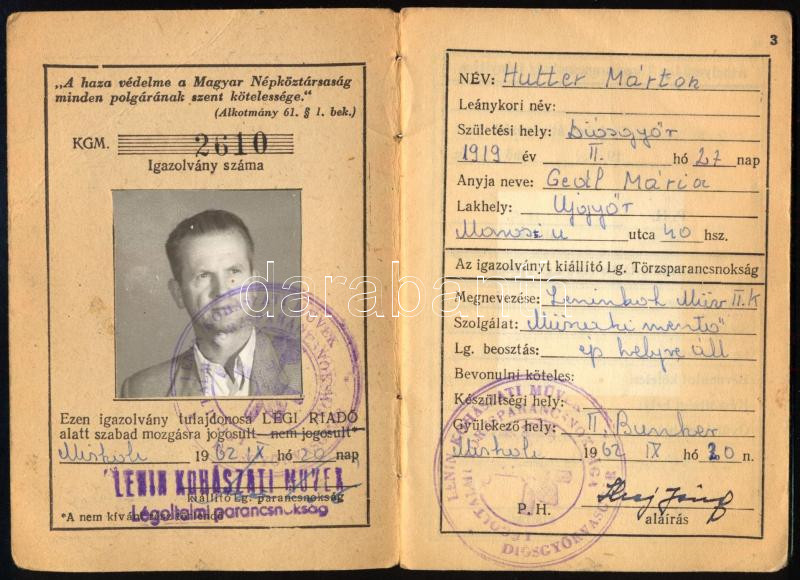 „A haza védelme a Magyar Népköztársaság
minden polgárának szent kötelessége.“
(Alkotmány 61. § 1. bek.)
KGM. 2610
Igazolvány száma
Ezen igazolvány tulajdonosa LÉGI RIADÓ
alatt szabad mozgásra jogosult — nem jogosult*
Miskolc 1962 IX hó 20 nap
LENIN KOHÁSZATI MŰVEK
kiállító Lg. parancsnokság
Légoltalmi parancsnokság
*A nem kívánt rész törlendő
3
NÉV: Hutter Márton
Leánykori név:
Születési hely: Diósgyőr
1919 év II. hó 27 nap
Anyja neve: Gedl Mária
Lakhely: Ujgyőr
utca 40 hsz.
Az igazolványt kiállító Lg. Törzsparancsnokság
Megnevezése: Leninkoh Műv II.K
Szolgálat: Műszaki mentő
Lg. beosztás: ép helyre áll
Bevonulni köteles:
Készültségi hely:
Gyülekező hely: II Bunker
Miskolc 1962 IX hó 20 n.
P. H.
aláírás
LENIN KOHÁSZATI MŰVEK
DIÓSGYŐRVASGYÁR
darabanth